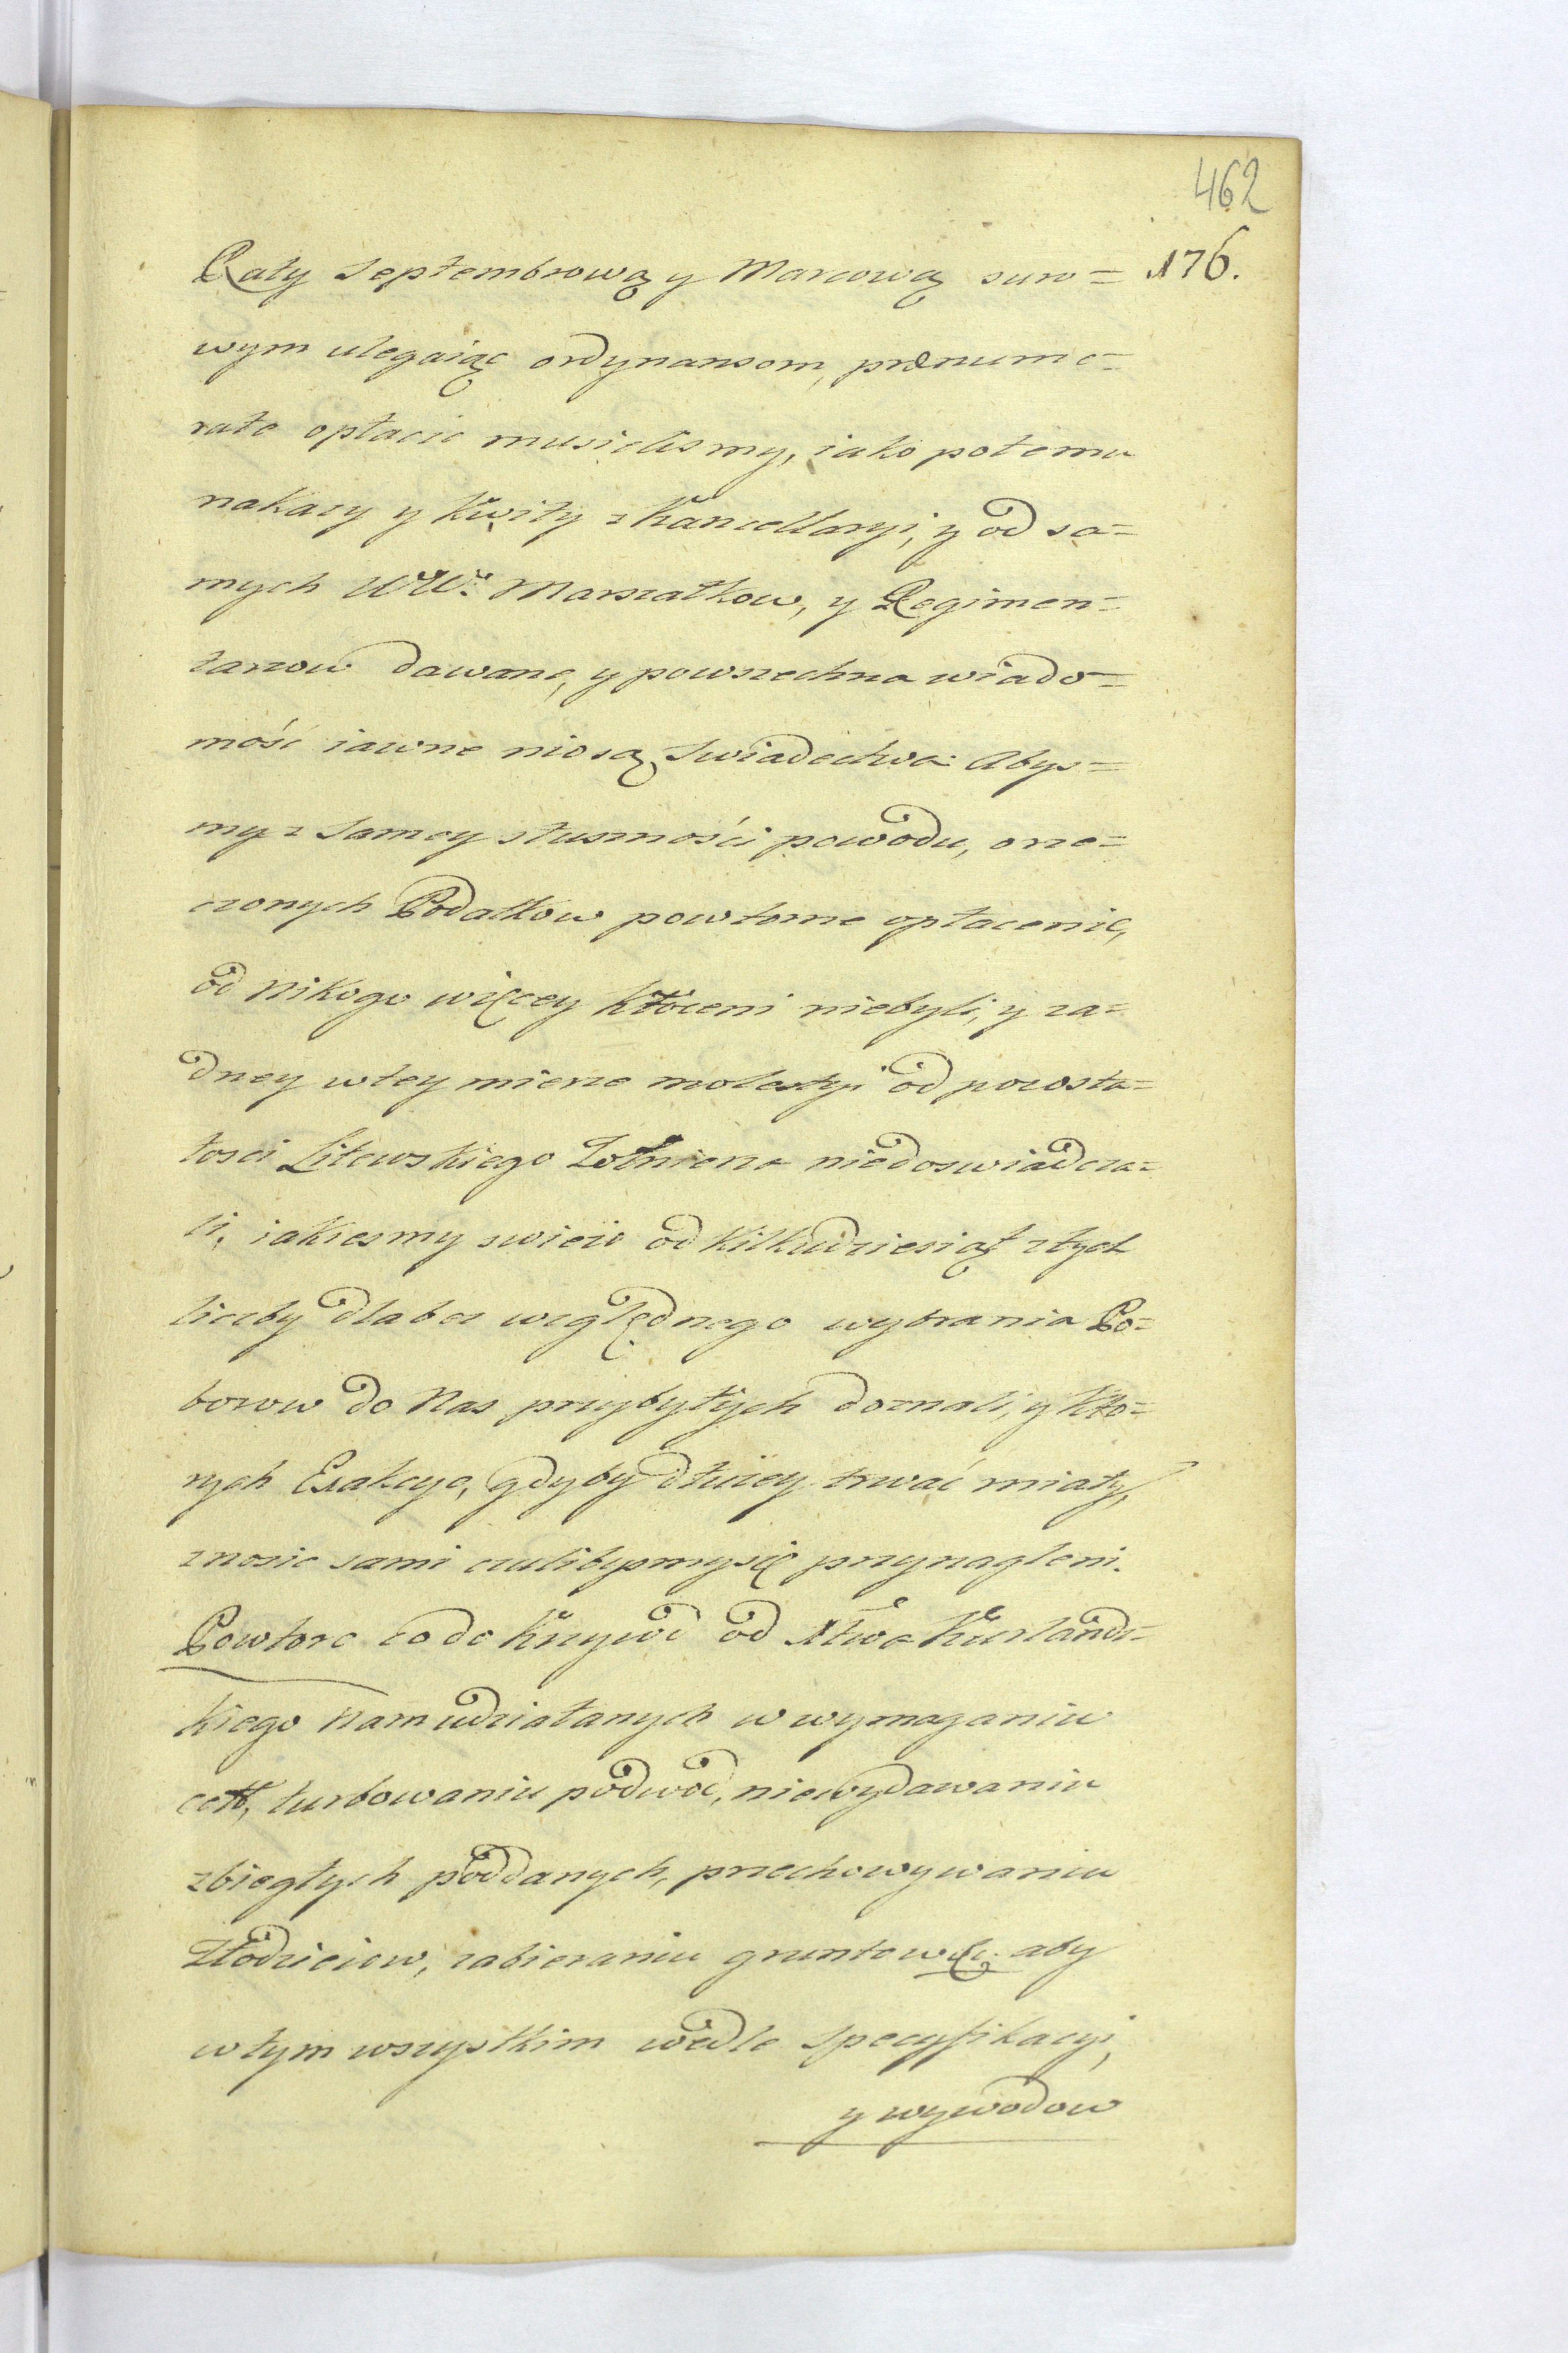 462
Raty Septembrową y Marcową suro=
176.
wym ulegaiąc ordynansom, prænume=
rate opłacic musielismy, iako potemu
nakazy y Kwity z Kancellaryi, y od sa=
mych WW. Marszałkow, y Regimen=
tarzow dawane, y powszechna wiado=
mość iawne niosą Swiadectwa: Abys=
my z Samey słuszności powodu, o rze=
czonych Podatkow powtorne opłacenie,
od nikogo więcey kłoceni niebyli, y ża=
dney wtey mierze molestyi od pozosta=
łosci Litewskiego Zołnierza niedoswiadcza=
li, iakiesmy swieżo od Kilkudziesiąt ztych
liczby dla bez względnego wybrania Po=
borow do Nas przybyłych doznali, y kto=
rych Exakcye, gdyby dłużey trwać miały,
znosic sami czulibysmysię przynagleni.
Powtore co do Krzywd od Xtwa Kurlands=
kiego Nam udziałanych w wymaganiu
cełł, turbowaniu podwod, niewydawaniu
zbiegłych poddanych, przechowywaniu
Złodzieiow, zabieraniu gruntow &c. aby
wtym wszystkim wedle Specyfikacyi,
y wywodow